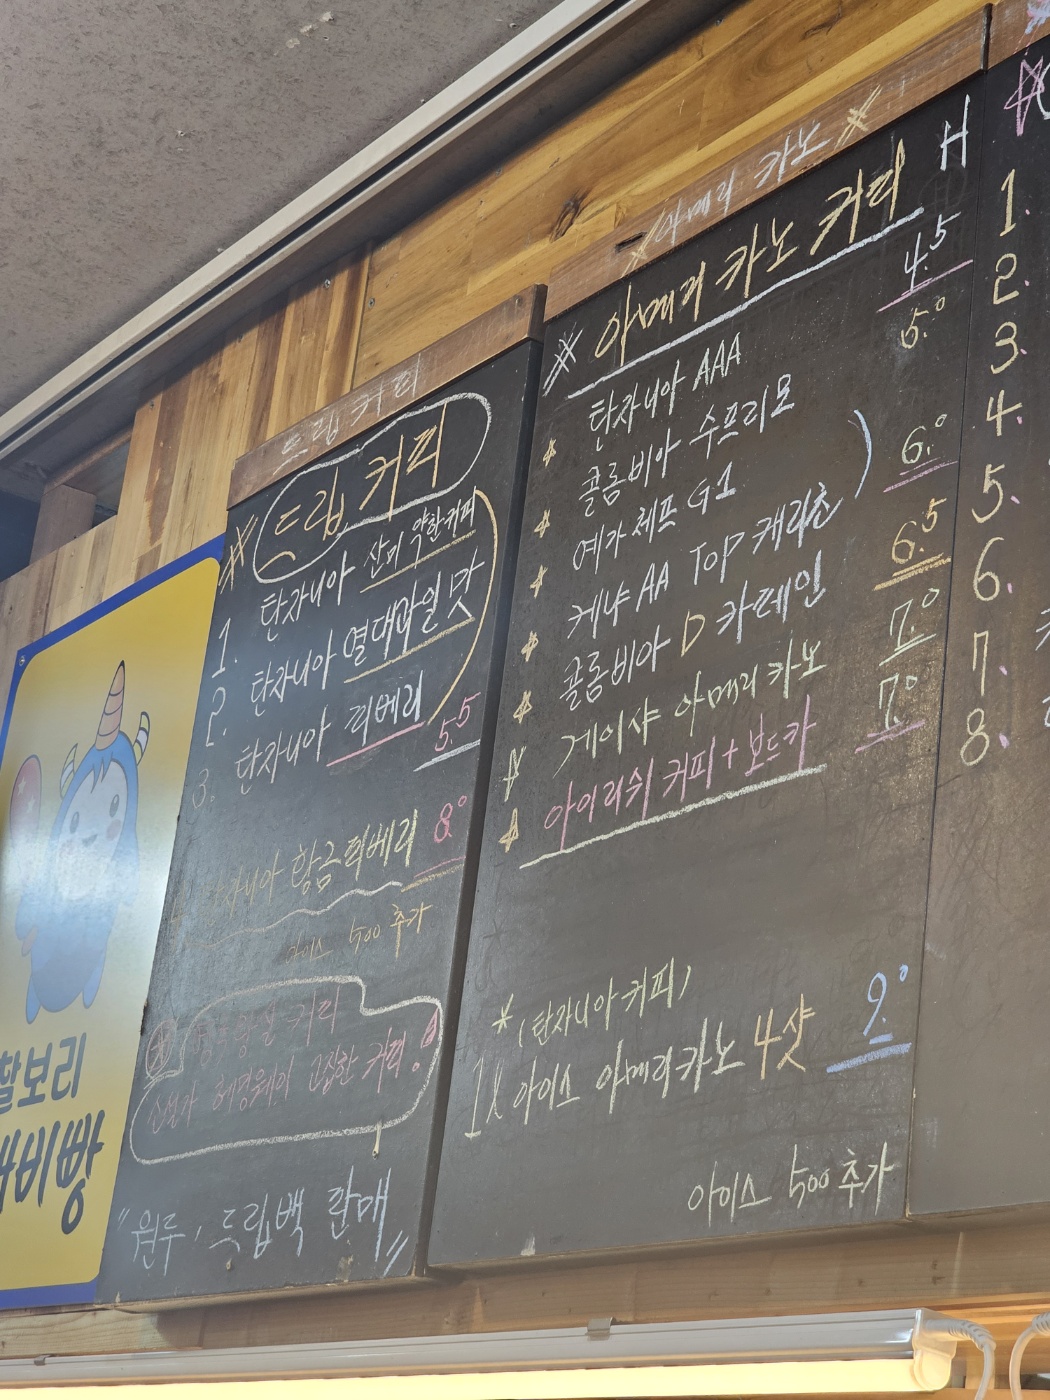 찰보리
드립 커피
※ 드립 커피
1. 탄자니아 산미 약한커피
2. 탄자니아 열대과일 맛
3. 탄자니아 피베리 5.5
탄자니아 황금피베리 8.0
아이스 500 추가
커피
고집한 커피!
"원두, 드립백 판매"
※아메리 카노※
※ 아메리 카노 커피 H
탄자니아 AAA 4.5
콜롬비아 수프리모 5.0
예가 체프 G1
케냐 AA TOP 캐리초 6.0
콜롬비아 D 카페인 6.5
게이샤 아메리카노 7.0
아이리쉬 커피+보드카 7.0
*(탄자니아커피)
1L 아이스 아메리카노 4샷 9.0
아이스 500 추가
1.
2.
3.
4.
5.
6.
7.
8.